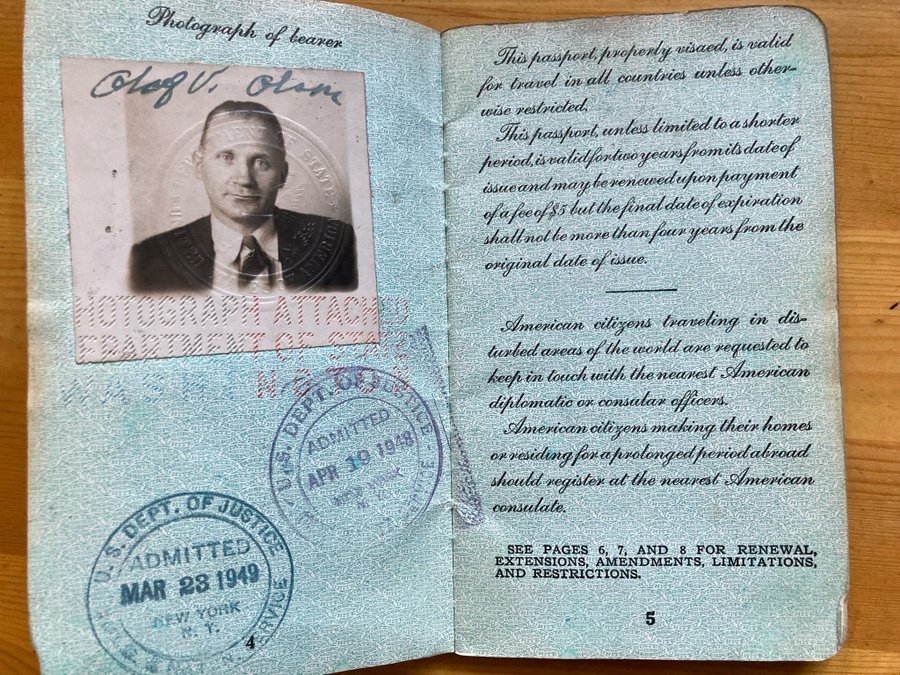 Photograph of bearer
Olaf V. Olsen
PHOTOGRAPH ATTACHED
DEPARTMENT OF STATE
WASHINGTON
U.S. DEPT. OF JUSTICE
ADMITTED
APR 19 1948
NEW YORK
N.Y.
U.S. DEPT. OF JUSTICE
ADMITTED
MAR 23 1949
NEW YORK
N.Y.
SERVICE
4
This passport, properly visaed, is valid
for travel in all countries unless other-
wise restricted.
This passport, unless limited to a shorter
period, is valid for two years from its date of
issue and may be renewed upon payment
of a fee of $5 but the final date of expiration
shall not be more than four years from the
original date of issue.
American citizens traveling in dis-
turbed areas of the world are requested to
keep in touch with the nearest American
diplomatic or consular officers.
American citizens making their homes
or residing for a prolonged period abroad
should register at the nearest American
consulate.
SEE PAGES 6, 7, AND 8 FOR RENEWAL,
EXTENSIONS, AMENDMENTS, LIMITATIONS,
AND RESTRICTIONS.
5